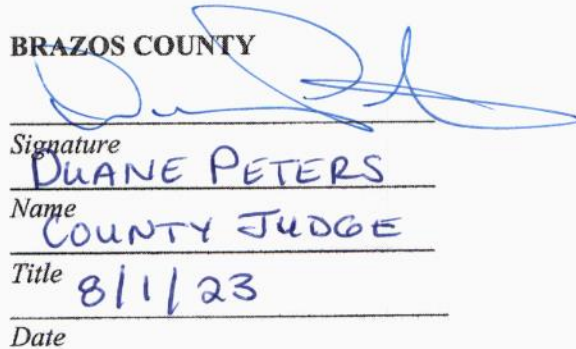 BRAZOS COUNTY
Signature
DUANE PETERS
Name
COUNTY JUDGE
Title
8/1/23
Date